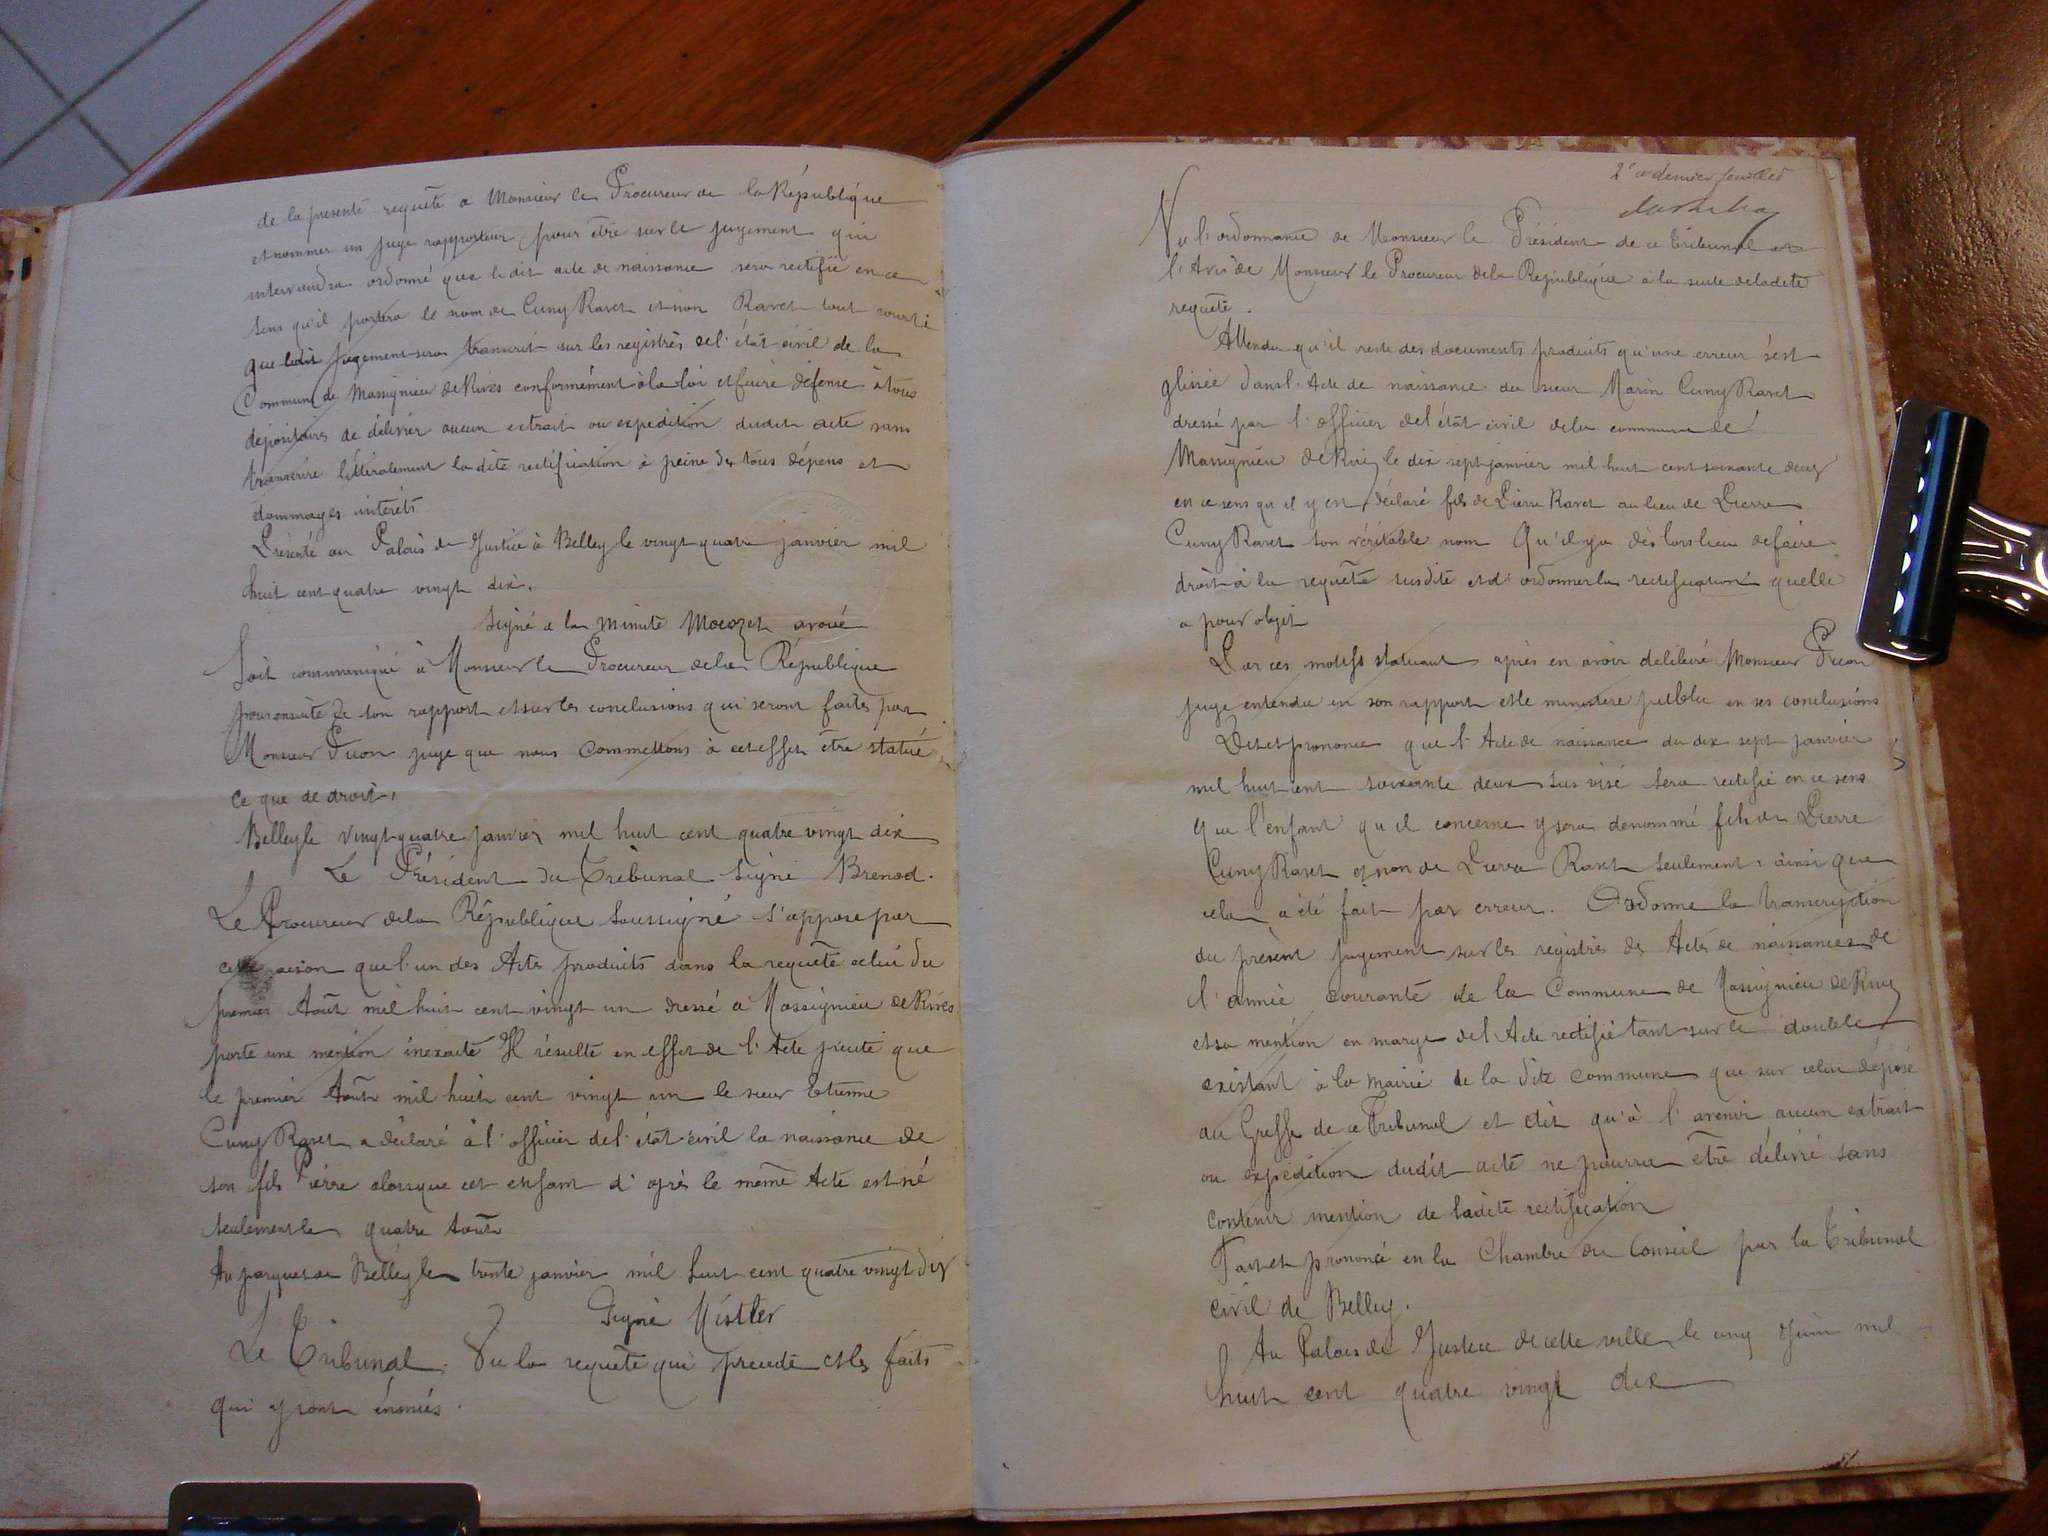 de la présente requête a Monsieur le Procureur de la République
et nommer un juge rapporteur pour être sur le jugement qui
interviendra ordonné que le dit acte de naissance sera rectifié en ce
sens qu'il portera le nom de Cuny Ravet et non Ravet tout court
que ledit jugement sera transcrit sur les registres de l'état civil de la
Commune de Massignieu de Rives conformément à la loi et faire défense à tous
dépositaires de délivrer aucun extrait ou expédition dudit acte sans
transcrire littéralement la dite rectification à peine de tous dépens et
dommages intérêts
Présenté au Palais de Justice à Belley le vingt quatre janvier mil
huit cent quatre vingt dix.
Signé a la minute avoué
Soit communiqué à Monsieur le Procureur de la République
pour ensuite de son rapport et sur les conclusions qui seront faites par
Monsieur juge que nous commettons à cet effet être statué
ce que de droit,
Belley le vingt quatre janvier mil huit cent quatre vingt dix
Le Président du Tribunal Signé Brenod.
Le Procureur de la République soussigné s'oppose par
cette raison que l'un des Actes produits dans la requête celui du
premier Août mil huit cent vingt un dressé a Massignieu de Rives
porte une mention inexacte Il résulte en effet de l'Acte précité que
le premier Août mil huit cent vingt un le sieur Etienne
Cuny Ravet a déclaré à l'officier de l'état civil la naissance de
son fils Pierre alorsque cet enfant d'après le même Acte est né
seulement le quatre Août
Au parquet de Belley le trente janvier mil huit cent quatre vingt dix
Signé Mistler
Le Tribunal. Vu la requête qui précède et les faits
qui y sont énoncés.
2e et dernier feuillet
Vu l'ordonnance de Monsieur le Président de ce Tribunal et
l'Avis de Monsieur le Procureur de la République à la suite de ladite
requête.
Attendu qu'il reste des documents produits qu'une erreur s'est
glissée dans l'Acte de naissance du sieur Marin Cuny Ravet
dressé par l'officier de l'état civil de la commune de
Massignieu de Rives le dix sept janvier mil huit cent soixante deux
en ce sens qu'il y est déclaré fils de Pierre Ravet au lieu de Pierre
Cuny Ravet son véritable nom Qu'il y a dès lors lieu de faire
droit à la requête susdite et d'ordonner la rectification quelle
a pour objet
Par ces motifs statuant après en avoir délibéré Monsieur
juge entendu en son rapport et le ministère public en ses conclusions
Dit et prononce que l'Acte de naissance du dix sept janvier
mil huit cent soixante deux sus visé sera rectifié en ce sens
que l'enfant qu'il concerne y sera dénommé fils de Pierre
Cuny Ravet et non de Pierre Ravet seulement ainsi que
cela a été fait par erreur. Ordonne la transcription
du présent jugement sur les registres des Actes de naissances de
l'année courante de la Commune de Massignieu de Rives
et sa mention en marge de l'Acte rectifié tant sur le double
existant à la mairie de la dite commune que sur celui déposé
au Greffe de ce Tribunal et dit qu'à l'avenir aucun extrait
ou expédition dudit acte ne pourra être délivré sans
contenir mention de ladite rectification
Fait et prononcé en la Chambre du Conseil par le Tribunal
civil de Belley.
Au Palais de Justice de cette ville le cinq Juin mil
huit cent quatre vingt dix